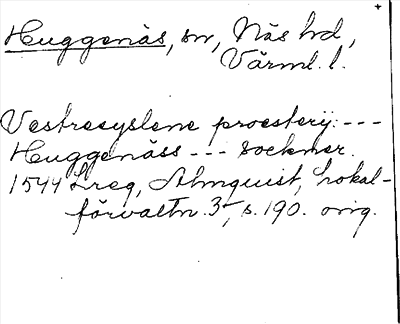 Huggenäs, sn, Näs hd,
Värml. l.
Vestresyslene proesterij: ---
Huggenäss --- sockner.
1544 Lreg, Almquist, Lokal-
förvaltn. 3, s. 190. orig.